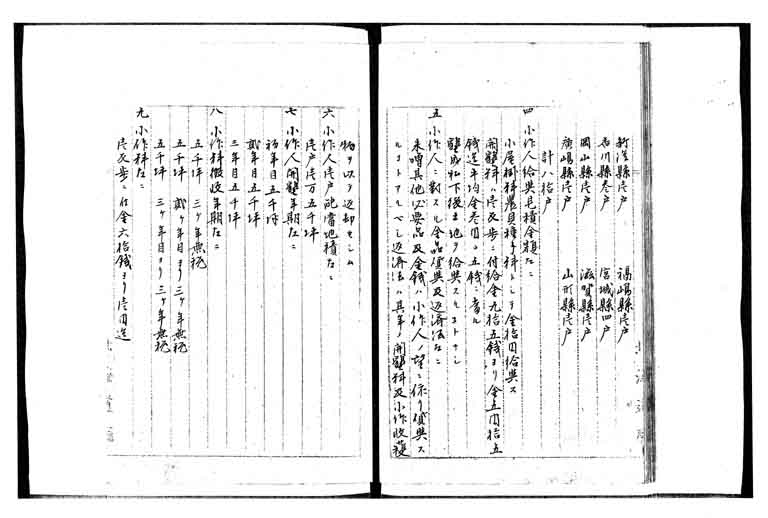 新潟縣壱戸 福嶋縣壱戸
石川縣参戸 宮城縣四戸
岡山縣壱戸 滋賀縣壱戸
廣嶋縣壱戸 山形縣壱戸
計八拾戸
四 小作人給與見積金額左ニ
小屋掛料農具種子料トシテ金拾円給與ス
開墾料ハ壱反歩ニ付給金九拾五銭ヨリ金五円拾五
銭迄平均金参円〇五銭ニ当ル
墾成払下後土地ヲ給與スルコトナシ
五 小作人ニ對スル金品貸與及返済法左ニ
米噌其他必要品及金銭ハ小作人ノ望ニ依リ貸與ス
ルコトアルベシ返済法ハ其年ノ開墾料及小作收穫
物ヲ以テ返却セシム
六 小作人壱戸配当地積左ニ
壱戸壱万五千坪
七 小作人開墾年期左ニ
初年目五千坪
貳年目五千坪
三年目五千坪
八 小作料徴收年期左ニ
五千坪 三ヶ年無税
五千坪 貳ヶ年目ヨリ三ヶ年無税
五千坪 三ヶ年目ヨリ三ヶ年無税
九 小作料左ニ
壱反歩ニ付金六拾銭ヨリ壱円迄